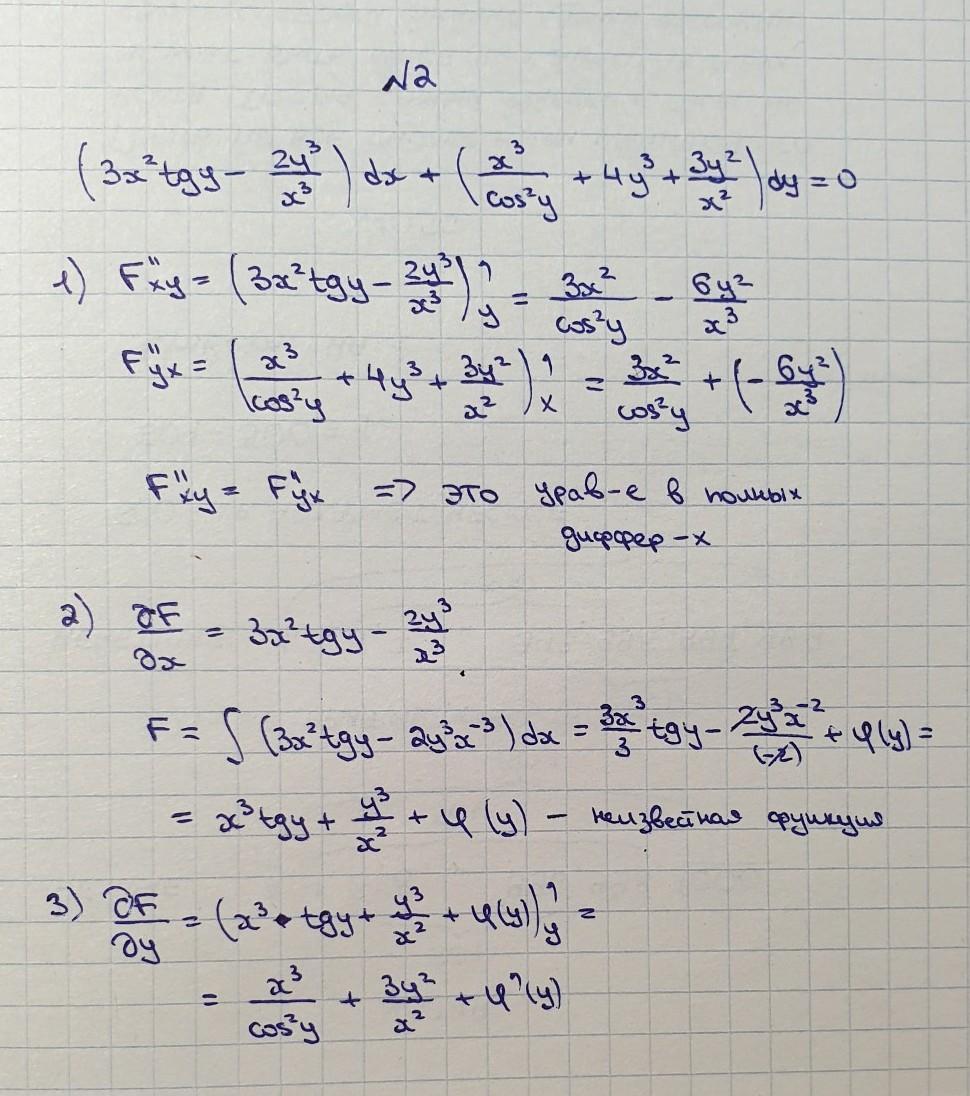 N2
(3x² tgy − 2y³/x³) dx + (x³/cos²y + 4y³ + 3y²/x²) dy = 0
1) F″xy = (3x² tgy − 2y³/x³)'y = 3x²/cos²y − 6y²/x³
F″yx = (x³/cos²y + 4y³ + 3y²/x²)'x = 3x²/cos²y + (− 6y²/x³)
F″xy = F″yx => это урав-е в полных
диффер-х
2) ∂F/∂x = 3x² tgy − 2y³/x³
F = ∫ (3x² tgy − 2y³x⁻³) dx = 3x³/3 tgy − 2y³x⁻²/(−2) + φ(y) =
= x³ tgy + y³/x² + φ(y) − неизвестная функция
3) ∂F/∂y = (x³ · tgy + y³/x² + φ(y))'y =
= x³/cos²y + 3y²/x² + φ'(y)